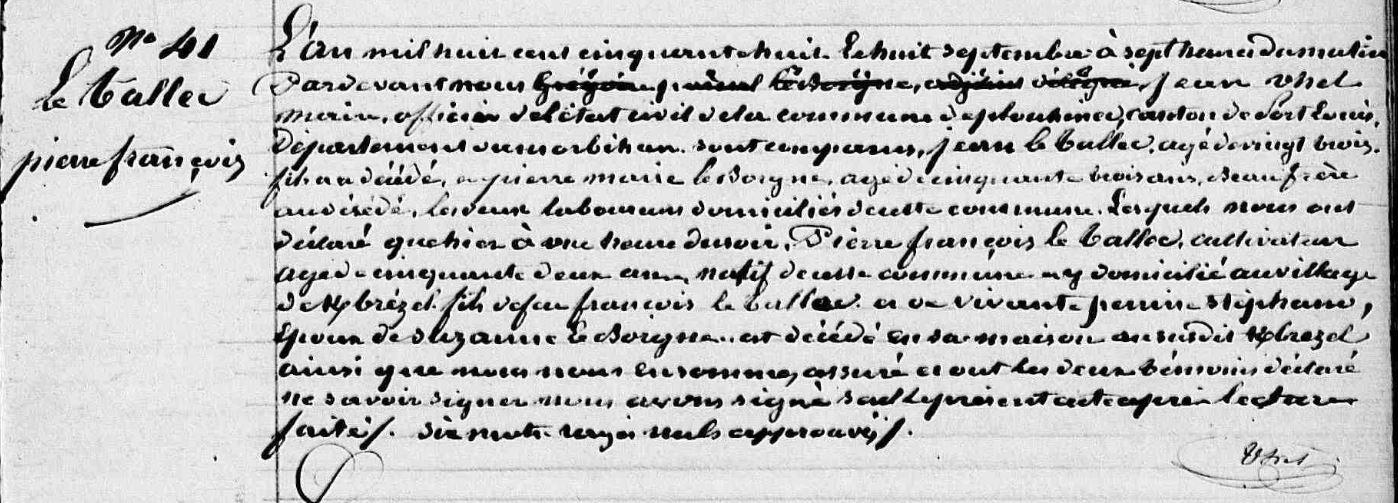 N° 41
Le Tallec
pierre françois
L'an mil huit cent cinquante huit le huit septembre à sept heures du matin
Pardevant nous Grégoire le Borgne, adjoint délégué, jean Uhel
maire, officier de l'état civil de la commune de plouhinec, canton de Port Louis,
département du morbihan. sont comparus, jean le Tallec, agé de vingt trois,
fils au décédé, et pierre marie le Borgne, agé de cinquante trois ans, Beau frère
au décédé, les deux laboureurs domiciliés de cette commune. Lesquels nous ont
déclaré que hier à une heure du soir, Pierre françois le Tallec, cultivateur
agé de cinquante deux ans, natif de cette commune et y domicilié au village
de Kbrézel fils de feu françois le Tallec et de vivante perrine stéphano,
Epoux de suzanne le Borgne. est décédé en sa maison au susdit Kbrezel
ainsi que nous nous en sommes assuré et ont les deux témoins déclaré
ne savoir signer nous avons signé seul le présent acte après lecture
faite. six mots rayés nuls approuvés.
Uhel